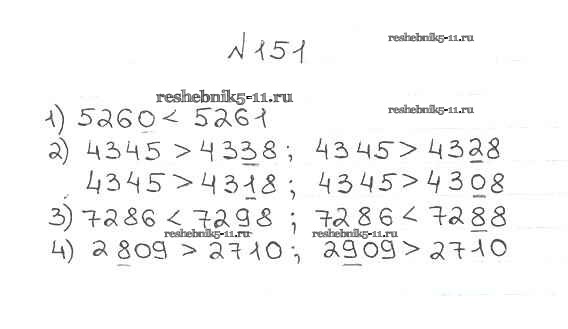 reshebnik5-11.ru
№151
reshebnik5-11.ru
reshebnik5-11.ru
1) 5260 < 5261
2) 4345 > 4338; 4345 > 4328
4345 > 4318; 4345 > 4308
3) 7286 < 7298; 7286 < 7288
reshebnik5-11.ru reshebnik5-11.ru
4) 2809 > 2710; 2909 > 2710